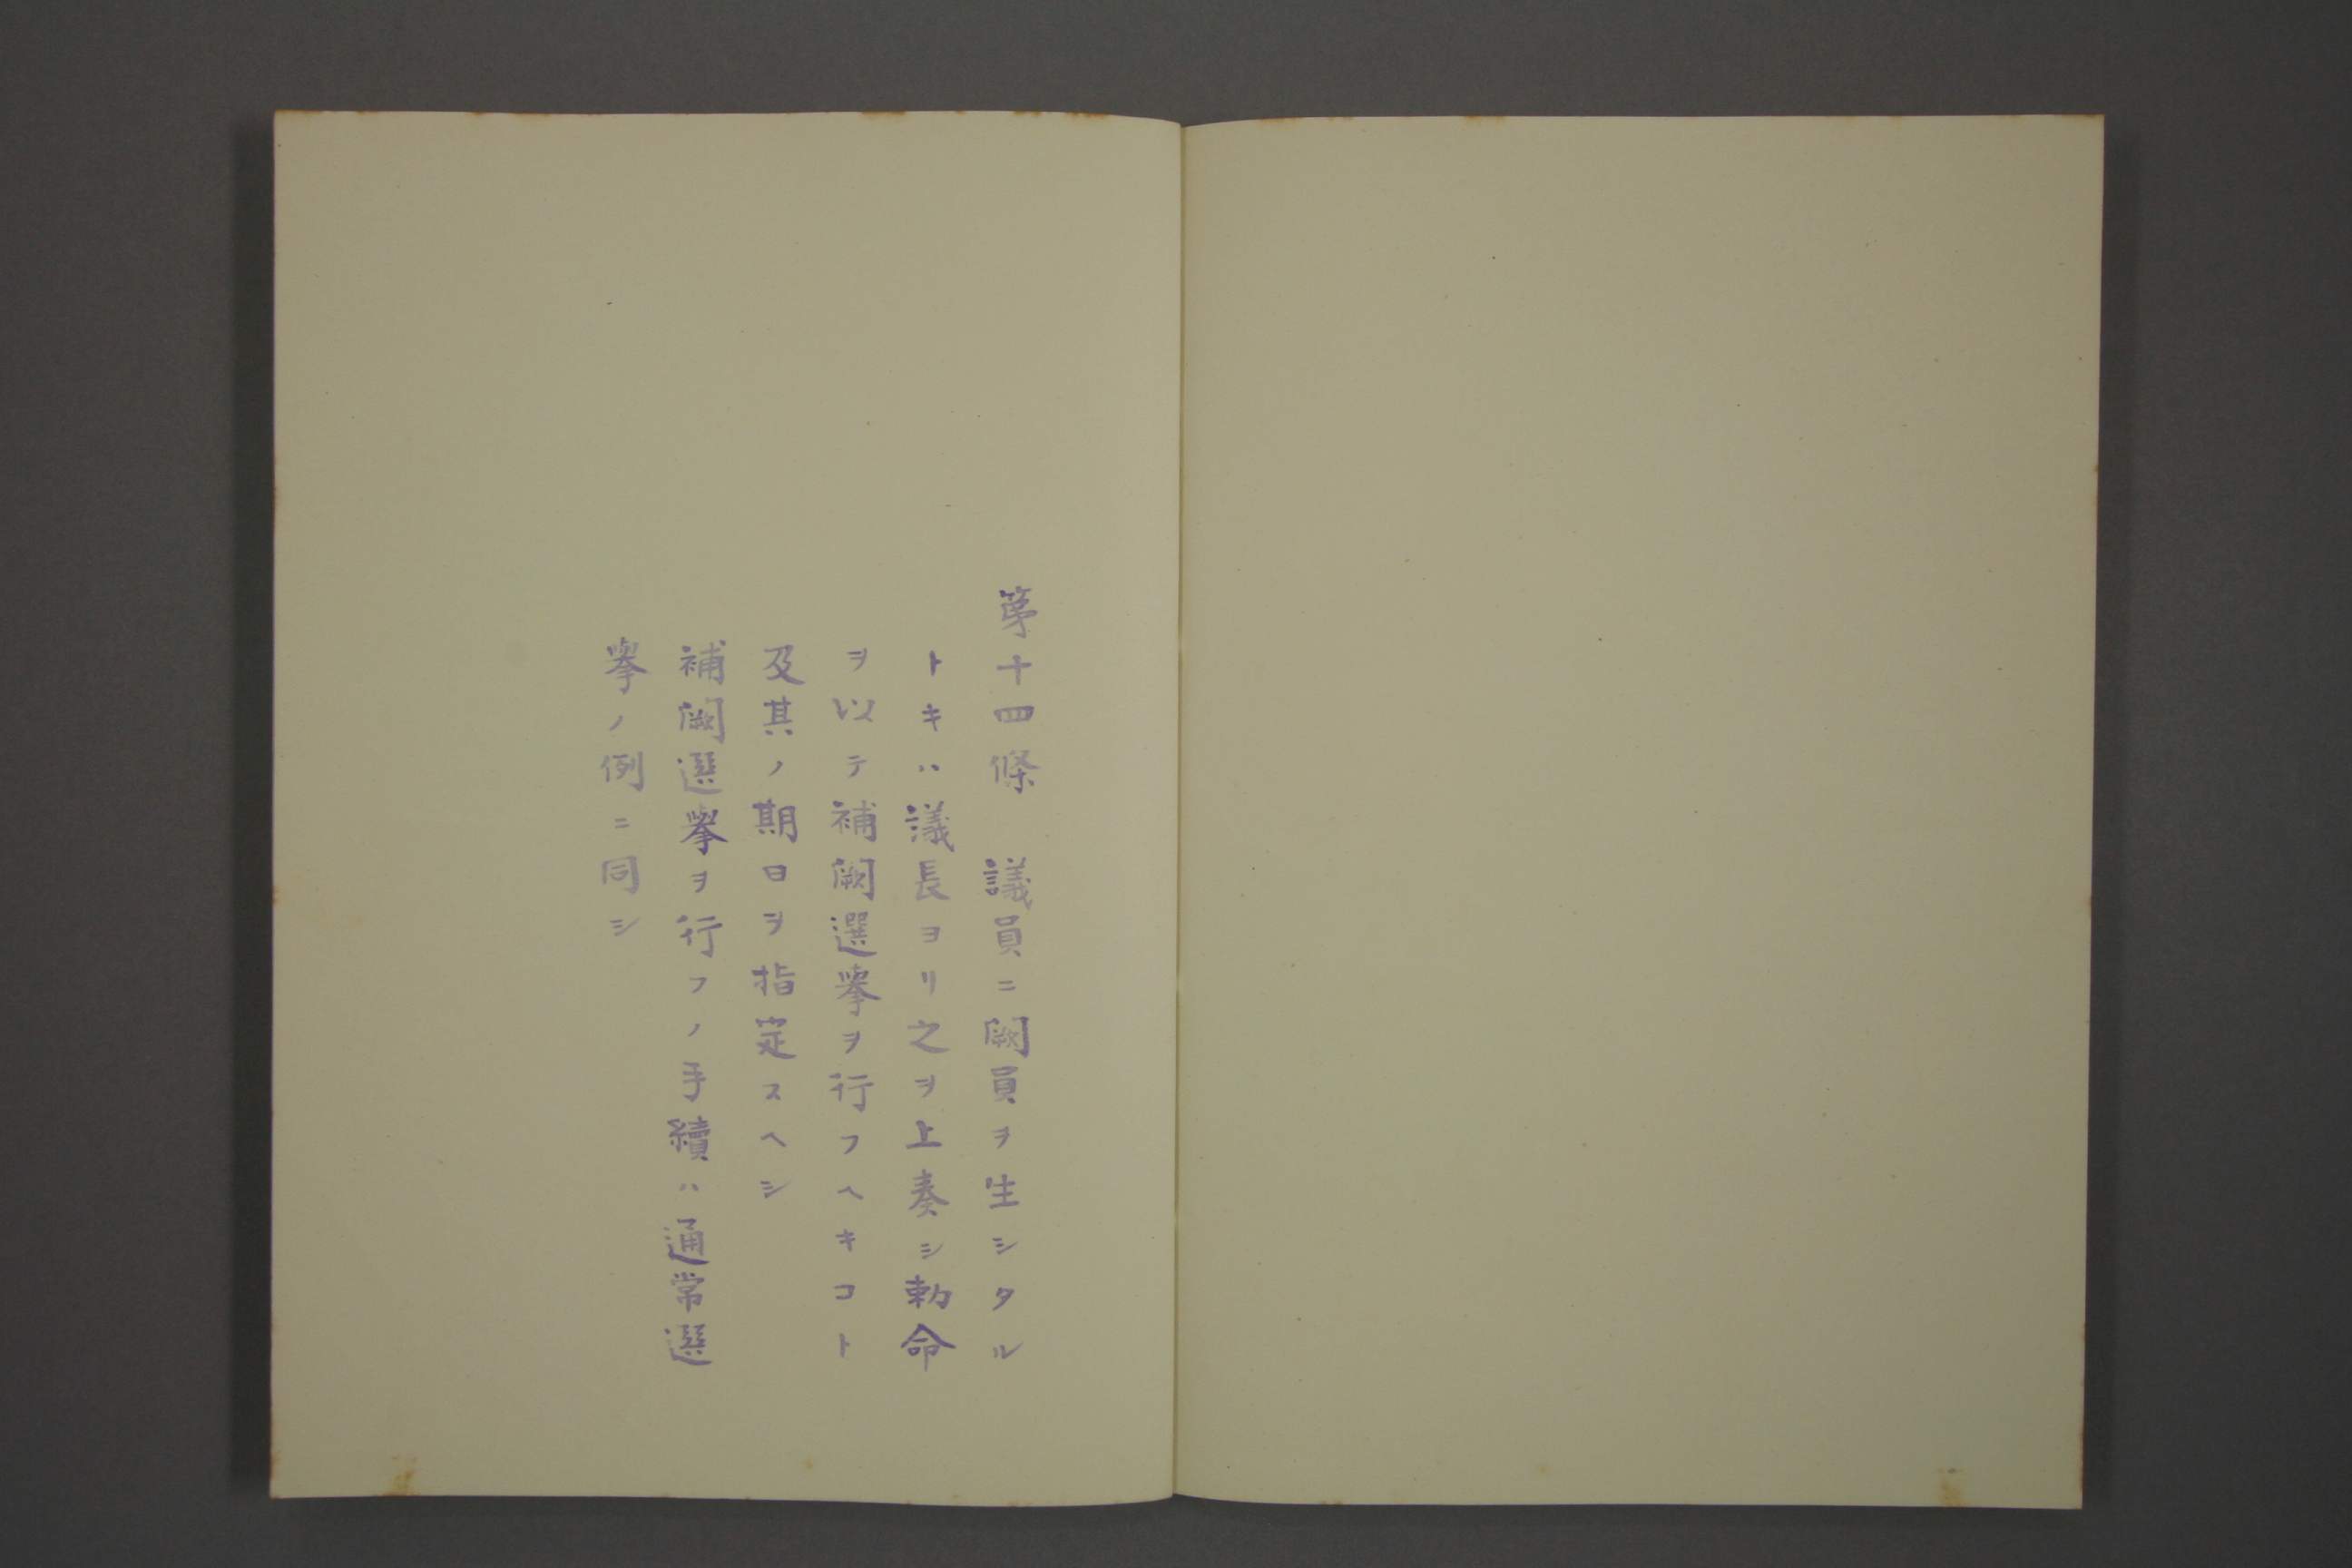 第十四條　議員ニ闕員ヲ生シタル
トキハ議長ヨリ之ヲ上奏シ勅命
ヲ以テ補闕選擧ヲ行フヘキコト
及其ノ期日ヲ指定スヘシ
補闕選擧ヲ行フノ手續ハ通常選
擧ノ例ニ同シ